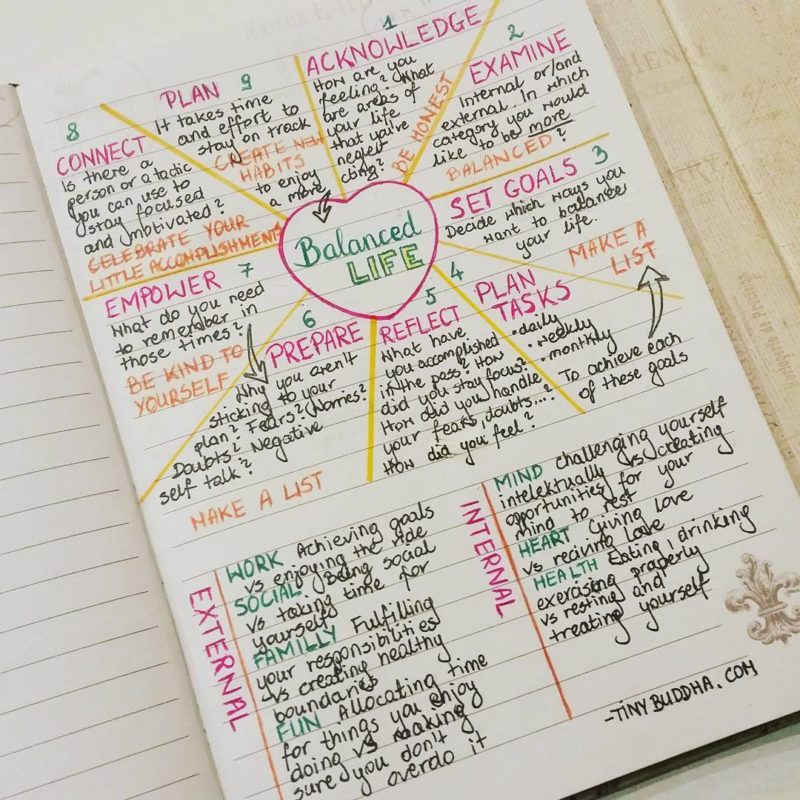 1
ACKNOWLEDGE
How are you
feeling? What
are areas of
your life
that you've
neglect
cting?
BE HONEST
2
EXAMINE
Internal or/and
external. In which
category you would
like to be more
BALANCED?
3
SET GOALS
Decide which ways you
want to balance
your life.
MAKE A
LIST
4
PLAN
TASKS
• daily
• weekly
• monthly
To achieve each
of these goals
5
REFLECT
What have
you accomplished
in the pass? How
did you stay focus?
How did you handle
your fears, doubts...?
How did you feel?
6
PREPARE
Why you aren't
sticking to your
plan? Fears? Worries?
Doubts? Negative
self talk?
MAKE A LIST
7
EMPOWER
What do you need
to remember in
those times?
BE KIND TO
YOURSELF
8
CONNECT
Is there a
person or a tactic
you can use to
stay focused
and motivated?
CELEBRATE YOUR
LITTLE ACCOMPLISHMENTS
9
PLAN
It takes time
and effort to
stay on track
CREATE NEW
HABITS
to enjoy
a more
Balanced
LIFE
EXTERNAL
WORK Achieving goals
vs enjoying the ride
SOCIAL. Being social
vs taking time for
yourself
FAMILLY Fulfilling
your responsibilities
vs creating healthy
boundaries
FUN Allocating time
for things you enjoy
doing vs making
sure you don't
overdo it
INTERNAL
MIND challenging yourself
intelektually vs creating
opportunities for your
mind to rest
HEART Giving Love
vs reciving Love
HEALTH Eating, drinking
exercising properly
vs resting and
treating yourself
-TINYBUDDHA.COM